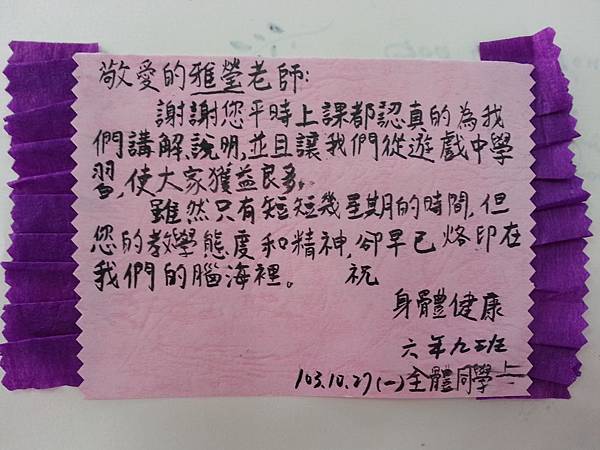 敬愛的雅瑩老師:
謝謝您平時上課都認真的為我
們講解、說明,並且讓我們從遊戲中學
習,使大家獲益良多。
雖然只有短短幾星期的時間,但
您的教學態度和精神,卻早已烙印在
我們的腦海裡。 祝
身體健康
六年九班
103.10.27(一)全體同學上